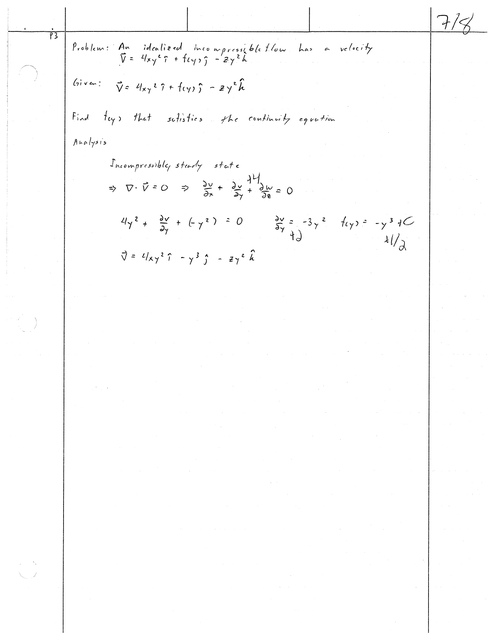 7/8
P3
Problem: An idealized incompressible flow has a velocity
V⃗ = 4xy² î + f(y) ĵ - zy² k̂
Given: V⃗ = 4xy² î + f(y) ĵ - zy² k̂
Find f(y) that satisfies the continuity equation
Analysis
Incompressible, steady state
+4
⇒ ∇·V⃗ = 0 ⇒ ∂u/∂x + ∂v/∂y + ∂w/∂z = 0
4y² + ∂v/∂y + (-y²) = 0 ∂v/∂y = -3y² f(y) = -y³ + C
+2 +1/2
V⃗ = 4xy² î - y³ ĵ - zy² k̂